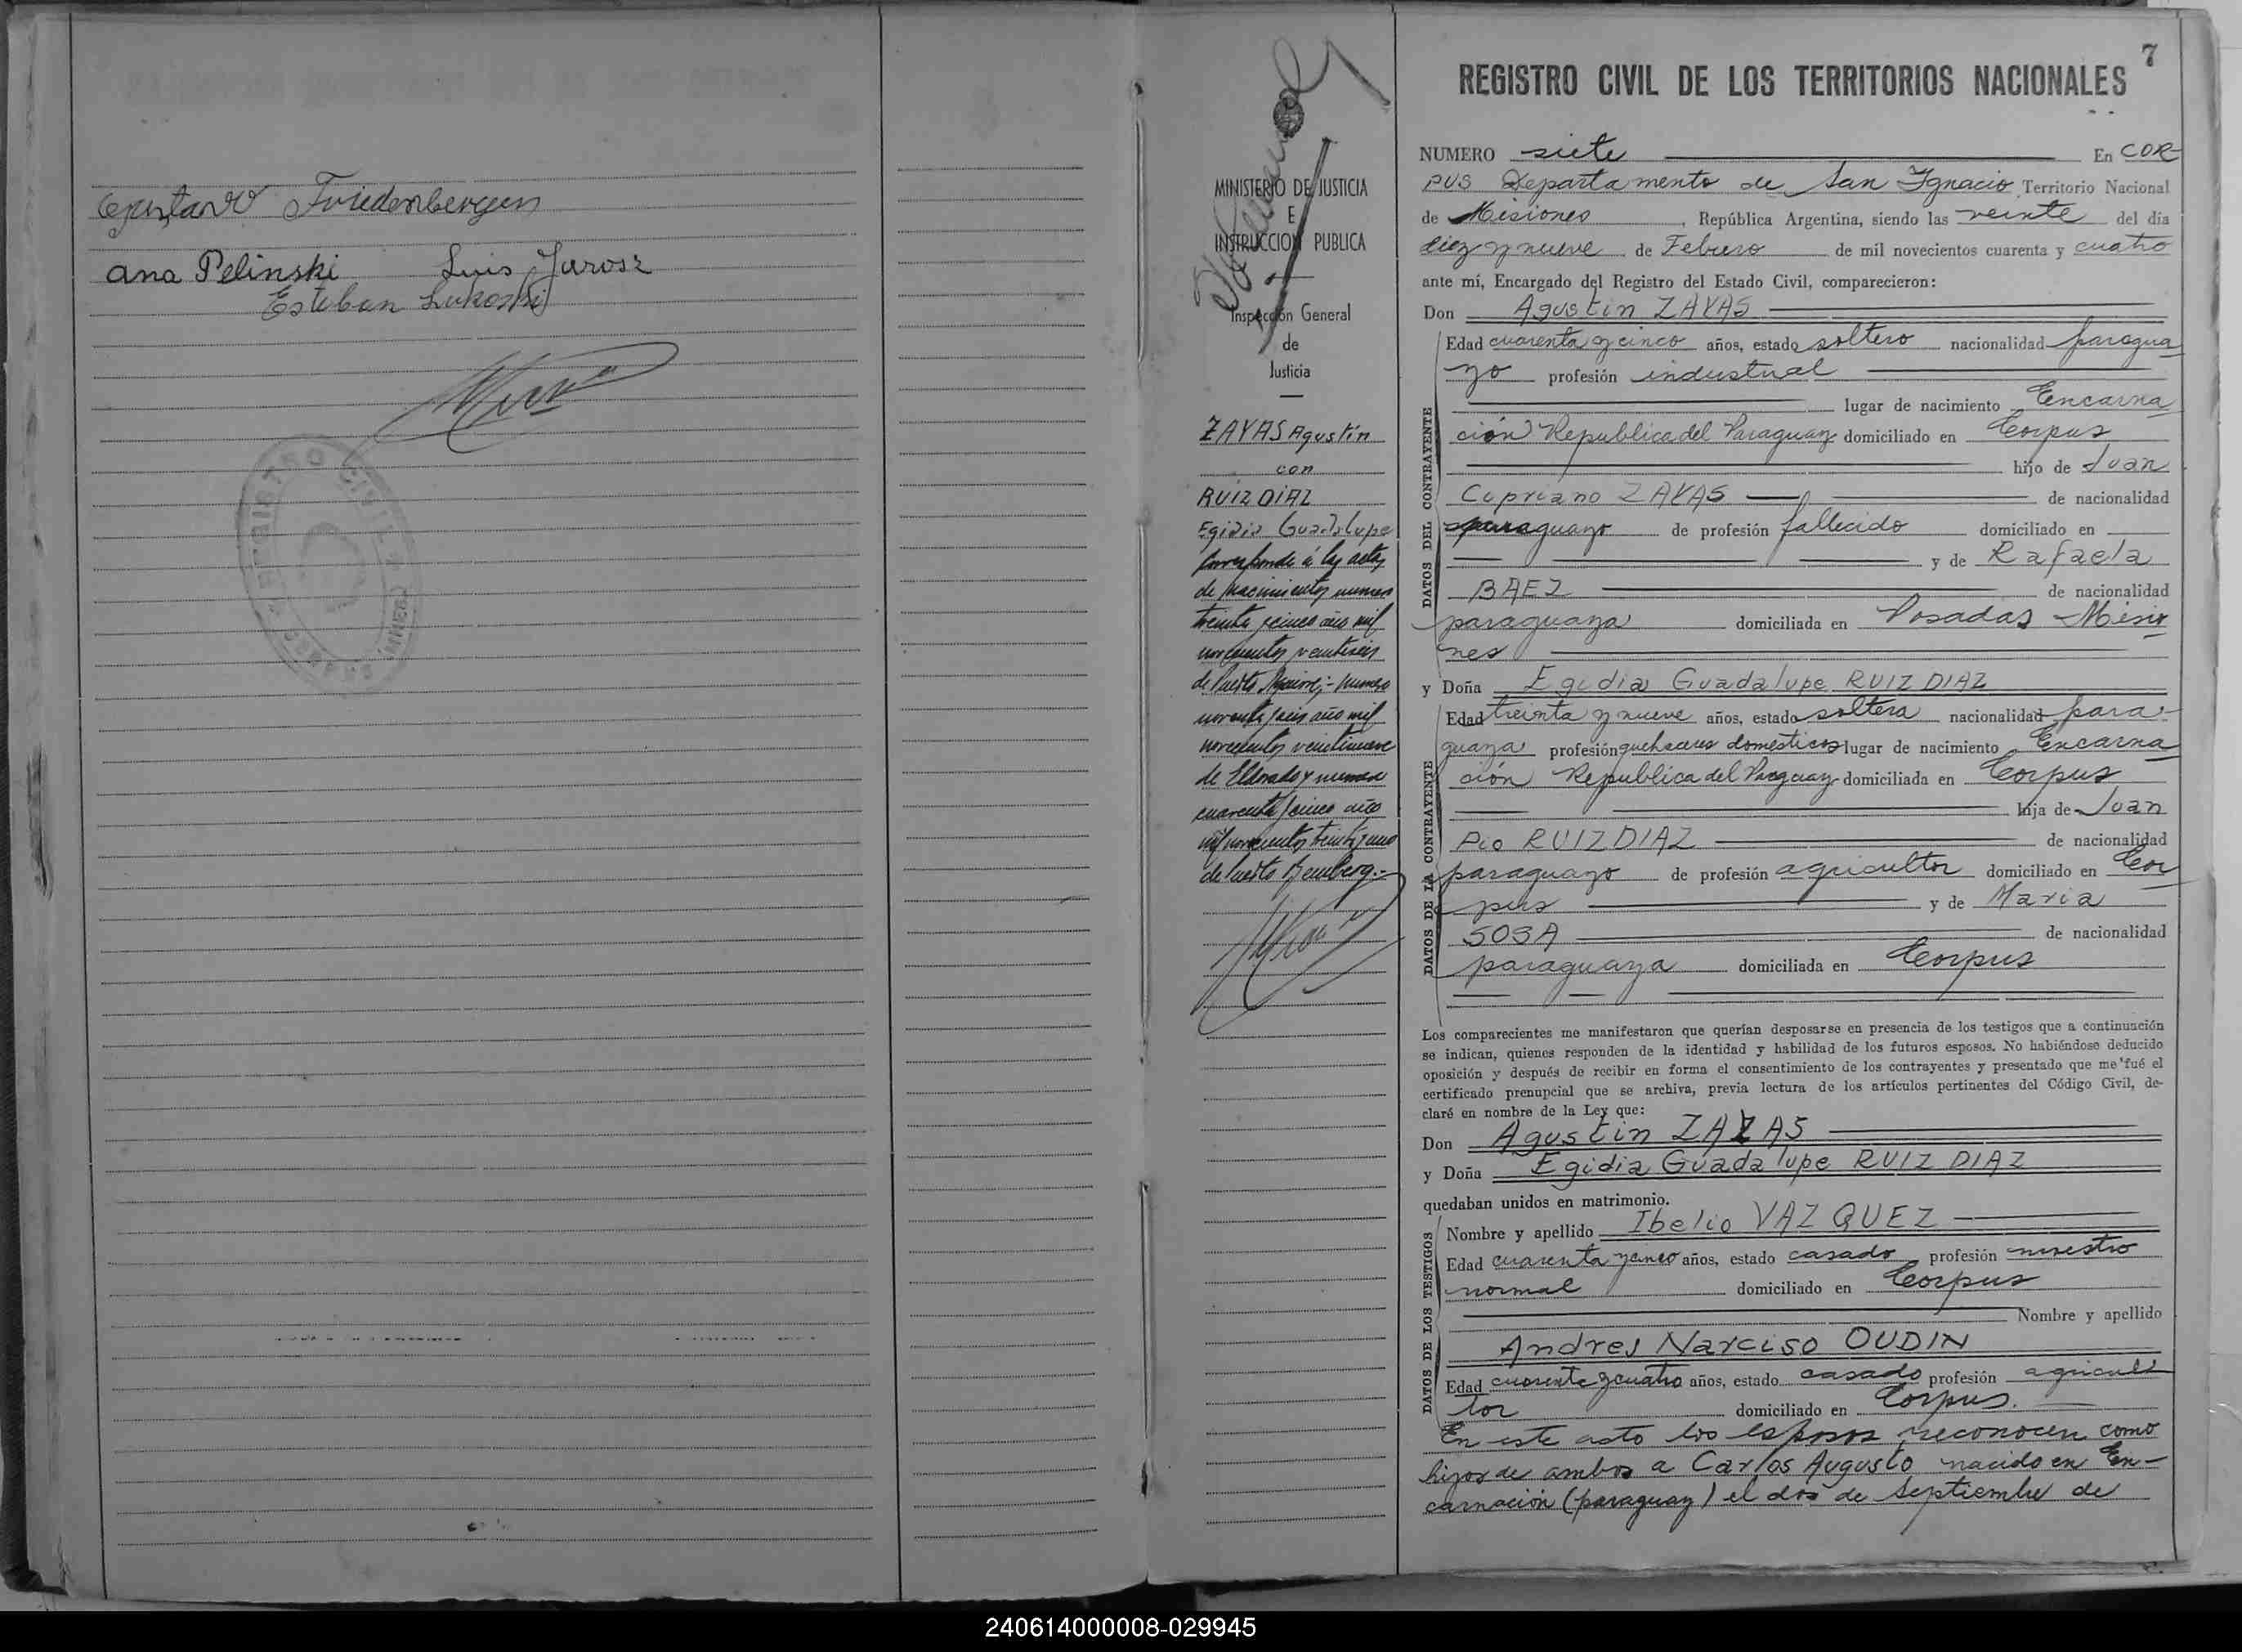 Gustavo Friedenbergen
Ana Pelinski Luis Jarosz
Esteban Lukoski
REGISTRO CIVIL
7
REGISTRO CIVIL DE LOS TERRITORIOS NACIONALES
MINISTERIO DE JUSTICIA
E
INSTRUCCION PUBLICA
Inspección General
de
Justicia
ZAYAS Agustín
con
RUIZ DIAZ
Egidia Guadalupe
Corresponde á las actas
de nacimientos numero
treinta y cinco año mil
novecientos veintiseis
de Puerto Aguirre;- numero
noventa y seis año mil
novecientos veintinueve
de Eldorado y numero
cuarenta y cinco año
mil novecientos treinta y uno
de Puerto Bemberg.-
NUMERO siete En COR-
PUS Departamento de San Ignacio Territorio Nacional
de Misiones República Argentina, siendo las veinte del día
diez y nueve de Febrero de mil novecientos cuarenta y cuatro
ante mí, Encargado del Registro del Estado Civil, comparecieron:
Don Agustin ZAYAS
DATOS DEL CONTRAYENTE
Edad cuarenta y cinco años, estado soltero nacionalidad paragua
yo profesión industrial
lugar de nacimiento Encarna
ción Republica del Paraguay domiciliado en Corpus
hijo de Juan
Cipriano ZAYAS de nacionalidad
paraguayo de profesión fallecido domiciliado en
y de Rafaela
BAEZ de nacionalidad
paraguaya domiciliada en Posadas Misio
nes
y Doña Egidia Guadalupe RUIZ DIAZ
DATOS DE LA CONTRAYENTE
Edad treinta y nueve años, estado soltera nacionalidad para-
guaya profesión quehaceres domesticos lugar de nacimiento Encarna
ción Republica del Paraguay domiciliada en Corpus
hija de Juan
Pio RUIZ DIAZ de nacionalidad
paraguayo de profesión agricultor domiciliado en Cor
pus y de Maria
SOSA de nacionalidad
paraguaya domiciliada en Corpus
Los comparecientes me manifestaron que querían desposarse en presencia de los testigos que a continuación
se indican, quienes responden de la identidad y habilidad de los futuros esposos. No habiéndose deducido
oposición y después de recibir en forma el consentimiento de los contrayentes y presentado que me fué el
certificado prenupcial que se archiva, previa lectura de los artículos pertinentes del Código Civil, de-
claré en nombre de la Ley que:
Don Agustin ZAYAS
y Doña Egidia Guadalupe RUIZ DIAZ
quedaban unidos en matrimonio.
DATOS DE LOS TESTIGOS
Nombre y apellido Ibelio VAZQUEZ
Edad cuarenta y cinco años, estado casado profesión maestro
normal domiciliado en Corpus
Nombre y apellido
Andres Narciso OUDIN
Edad cuarenta y cuatro años, estado casado profesión agricul
tor domiciliado en Corpus.
En este acto los esposos reconocen como
hijos de ambos a Carlos Augusto nacido en En-
carnación (paraguay) el dos de Septiembre de
240614000008-029945